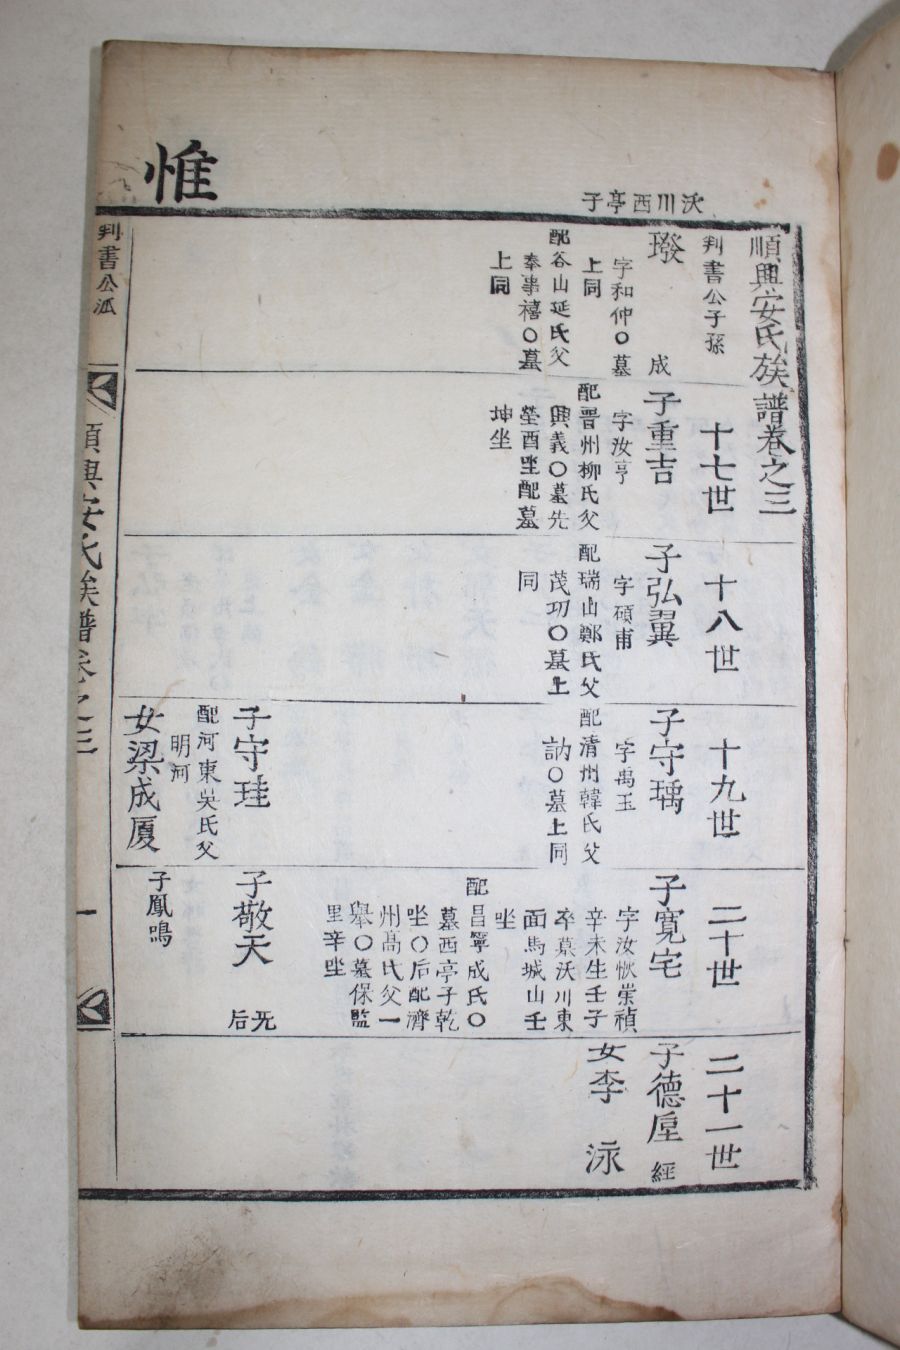 惟
沃川西亭子
順興安氏族譜卷之三
判書公子孫
璒 成
字和仲○墓
上同
配谷山延氏父
奉事禧○墓
上同
十七世
子重吉
字汝亨
配晋州柳氏父
興義○墓先
塋酉坐配墓
坤坐
十八世
子弘翼
字碩甫
配瑞山鄭氏父
茂功○墓上
同
十九世
子守瑀
字禹玉
配清州韓氏父
訥○墓上同
子守珪
配河東吳氏父
明河
女梁成厦
二十世
子寬宅
字汝恢崇禎
辛未生壬子
卒墓沃川東
面馬城山壬
坐
配昌寧成氏○
墓西亭子乾
坐○后配濟
州高氏父一
擧○墓保監
里辛坐
子敬天 无后
子鳳鳴
二十一世
子德垕 經
女李泳
判書公派
順興安氏族譜卷之三
一